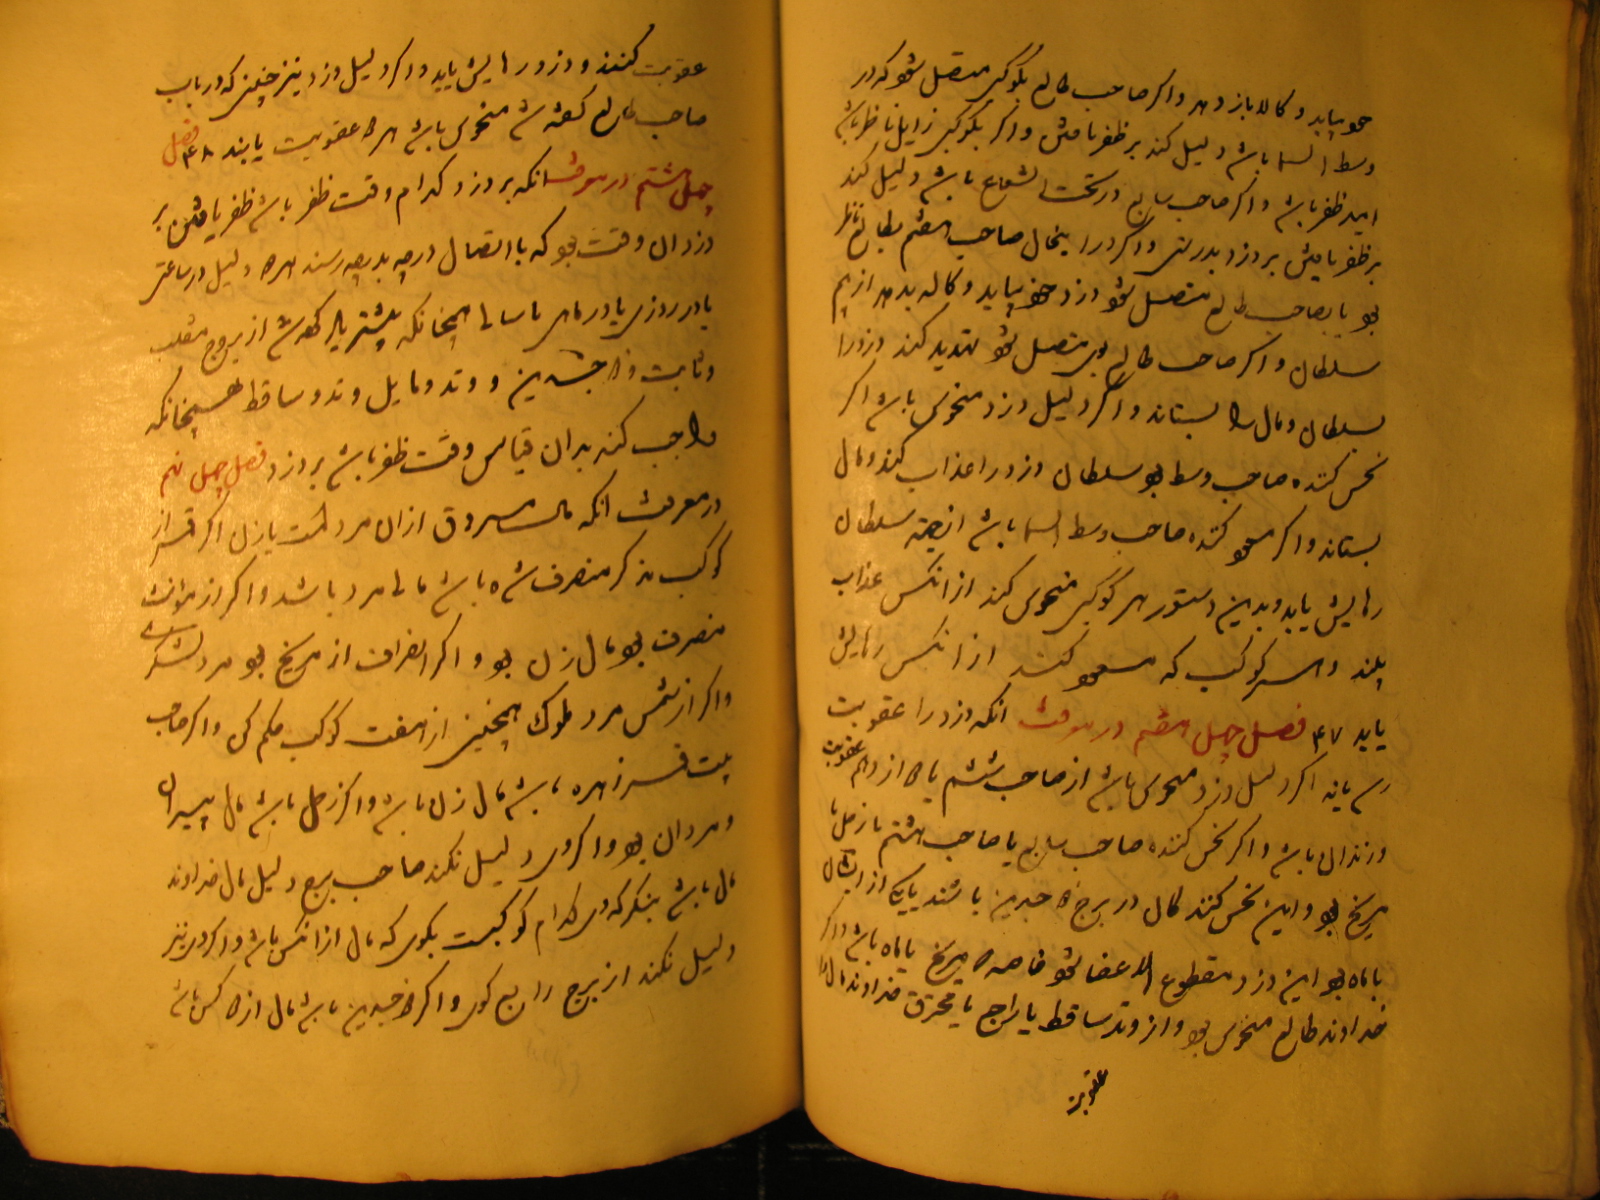 خود بیاید و کالا باز دهد و اکر صاحب طالع بکوکبی متصل شود که در
وسط السما باشد دلیل کند بر ظفر یافتن و اکر بکوکبی زایل ناظر باشد
امید ظفر باشد و اکر صاحب سابع در تحت الشعاع باشد دلیل کند
بر ظفر یافتن بر دزد بدرستی و اکر درین حال صاحب هفتم بطالع ناظر
بود یا بصاحب طالع متصل شود دزد خود بیاید و کاله بدهد از بیم
سلطان و اکر صاحب طالع بوی متصل شود تهدید کند دزد را
بسلطان و مال را بستاند و اکر دلیل دزد منحوس باشد اکر
نحس کننده صاحب وسط بود سلطان دزد را عذاب کند و مال
بستاند و اکر مسعود کننده صاحب وسط السما باشد از جهة سلطان
رهایش یابد و بدین دستور هر کوکبی منحوس کند از انکس عذاب
بیند و هر کوکب که مسعود کند از انکس رهایش
یابد ۴۷ فصل چهل هفتم در معرفت انکه دزد را عقوبت
رسد یا نه اکر دلیل دزد منحوس باشد از صاحب ششم یا دوازدهم عقوبت
در زندان باشد و اکر نحس کننده صاحب سابع یا صاحب هشتم یا زحل یا
مریخ بود و این نحس کنند کان در برج ذو جسدین باشند یا یکی از ایشان
با ماه بود این دزد مقطوع الاعضا شود خاصه که مریخ با ماه باشد و اکر
خداوند طالع منحوس بود و از وتد ساقط یا راجع یا محترق خداوند مال را
عقوبت
عقوبت کنند و دزد رهایش یابد و اکر دلیل دزد نیز چنین که در باب
صاحب طالع کفته شد منحوس باشد هر دو عقوبت یابند ۴۸ فصل
چهل هشتم در معرفت انکه بر دزد کدام وقت ظفر باشد ظفر یافتن بر
دزد ان وقت بود که با اتصال درجه بدرجه رسند هر دو دلیل در ساعتی
یا در روزی یا در ماهی یا سالی همچنانکه پیشتر یاد کرده شد از بروج منقلب
و ثابت و ذو جسدین و وتد و مایل وتد و ساقط همچنانکه
واجب کند بدان قیاس وقت ظفر باشد بر دزد فصل چهل نهم
در معرفت انکه مال مسروق از ان مرد است یا زن اکر قمر از
کوکب مذکر منصرف شده باشد مال مرد باشد و اکر از مؤنث
منصرف بود مال زن بود و اکر انصراف از مریخ بود مرد لشکری
و اکر از شمس مرد ملوک همچنین از هفت کوکب حکم کن و اکر صاحب
بیت قمر زهره باشد مال زن باشد و اکر زحل باشد مال پیران
و مردان بود و اکر وی دلیل نکند صاحب ربع دلیل مال خداوند
مال باشد بنکر که وی کدام کوکبست بکوی که مال از انکس باشد و اکر وی نیز
دلیل نکند از برج رابع کوی و اکر ذو جسدین باشد مال از دو کس باشد